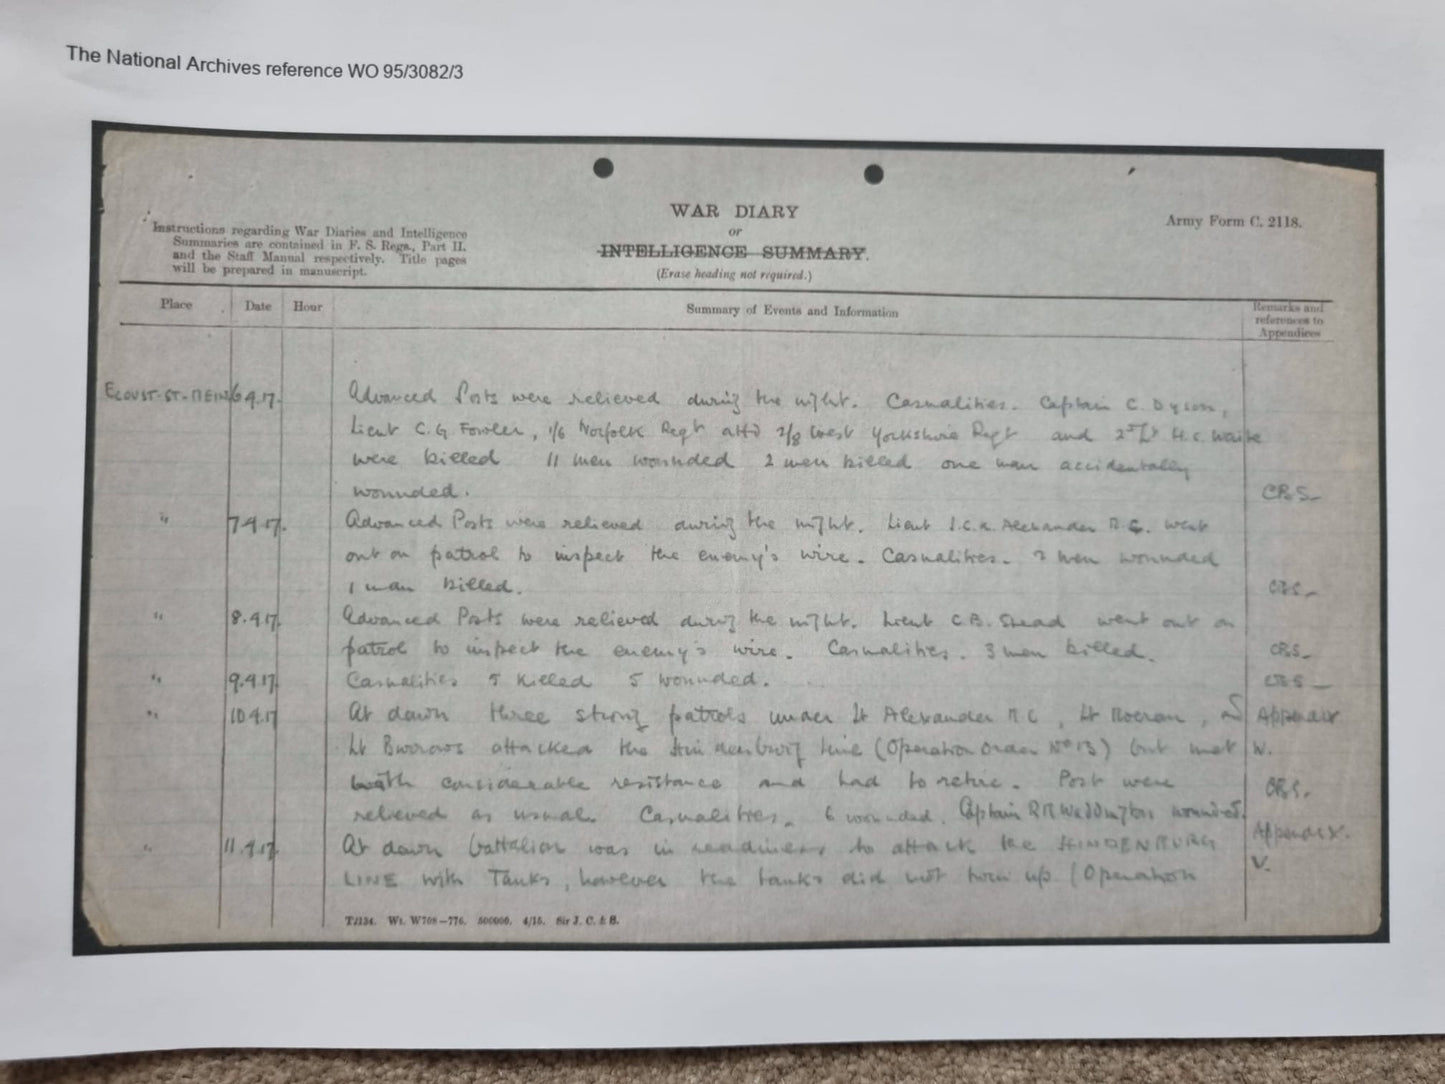 The National Archives reference WO 95/3082/3
WAR DIARY
or
INTELLIGENCE SUMMARY.
(Erase heading not required.)
Army Form C. 2118.
Instructions regarding War Diaries and Intelligence
Summaries are contained in F. S. Regs., Part II.
and the Staff Manual respectively. Title pages
will be prepared in manuscript.
Place Date Hour Summary of Events and Information Remarks and
references to
Appendices
ECOUST-ST-MEIN 6.4.17. Advanced Posts were relieved during the night. Casualities. Captain C. Dyson,
Lieut C.G. Fowler, 1/6 Norfolk Regt attd 2/8 West Yorkshire Regt and 2nd Lt H.C. Waite
were killed 11 men wounded 2 men killed one man accidentally
wounded. CBS
" 7.4.17. Advanced Posts were relieved during the night. Lieut Alexander M.C. went
out on patrol to inspect the enemy's wire. Casualities. men wounded
1 man killed. CBS
" 8.4.17. Advanced Posts were relieved during the night. Lieut C.B. Stead went out on
patrol to inspect the enemy's wire. Casualities. 3 men killed. CBS
" 9.4.17. Casualities 5 killed 5 wounded. CBS
" 10.4.17 At dawn three strong patrols under Lt Alexander M C, Lt , and Appendix
Lt Burrows attacked the Hindenburg Line (Operation Order No 13) but met W.
with considerable resistance and had to retire. Post were CBS.
relieved as usual. Casualities. 6 wounded. Captain Waddington wounded.
" 11.4.17 At dawn battalion was in readiness to attack the HINDENBURG Appendix.
LINE with Tanks, however the tanks did not turn up (Operation V.
T2134. Wt. W708-776. 500000. 4/15. Sir J. C. & S.